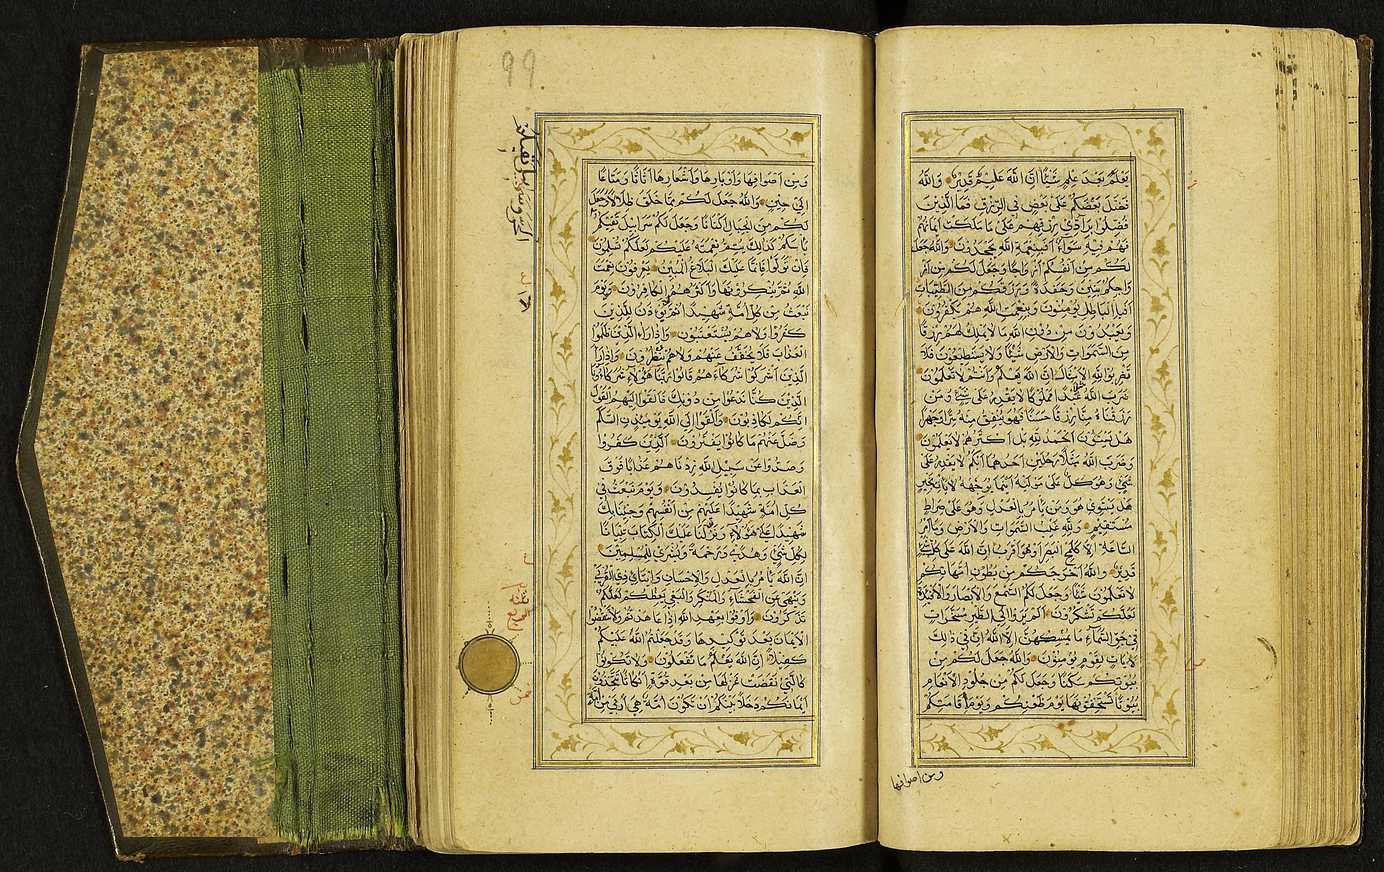 يعلم بعد علم شيئا ان الله عليم قدير والله
فضل بعضكم على بعض في الرزق فما الذين
فضلوا برادي رزقهم على ما ملكت ايمانهم
فهم فيه سواء افبنعمة الله يجحدون والله جعل
لكم من انفسكم ازواجا وجعل لكم من از
واجكم بنين وحفدة ورزقكم من الطيبات
افبالباطل يؤمنون وبنعمت الله هم يكفرون
ويعبدون من دون الله ما لا يملك لهم رزقا
من السموات والارض شيئا ولا يستطيعون فلا
تضربوا لله الامثال ان الله يعلم وانتم لا تعلمون
ضرب الله مثلا عبدا مملوكا لا يقدر على شئ ومن
رزقناه منا رزقا حسنا فهو ينفق منه سرا وجهرا
هل يستون الحمد لله بل اكثرهم لا يعلمون
وضرب الله مثلا رجلين احدهما ابكم لا يقدر على
شئ وهو كل على موليه اينما يوجهه لا يات بخير
هل يستوي هو ومن يامر بالعدل وهو على صراط
مستقيم ولله غيب السموات والارض وما امر
الساعة الا كلمح البصر او هو اقرب ان الله على كل شئ
قدير والله اخرجكم من بطون امهاتكم
لا تعلمون شيئا وجعل لكم السمع والابصار والافئدة
لعلكم تشكرون الم يروا الى الطير مسخرات
في جو السماء ما يمسكهن الا الله ان في ذلك
لايات لقوم يؤمنون والله جعل لكم من
بيوتكم سكنا وجعل لكم من جلود الانعام
بيوتا تستخفونها يوم ظعنكم ويوم اقامتكم
ومن اصوافها
٩٩
ومن اصوافها واوبارها واشعارها اثاثا ومتاعا
الى حين والله جعل لكم مما خلق ظلالا وجعل
لكم من الجبال اكنانا وجعل لكم سرابيل تقيكم
باسكم كذلك يتم نعمته عليكم لعلكم تسلمون
فان تولوا فانما عليك البلاغ المبين يعرفون نعمت
الله ثم ينكرونها واكثرهم الكافرون ويوم
نبعث من كل امة شهيدا ثم لا يؤذن للذين
كفروا ولا هم يستعتبون واذا راى الذين ظلموا
العذاب فلا يخفف عنهم ولا هم ينظرون واذا راى
الذين اشركوا شركاءهم قالوا ربنا هؤلاء شركاؤنا
الذين كنا ندعوا من دونك فالقوا اليهم القول
انكم لكاذبون والقوا الى الله يومئذ السلم
وضل عنهم ما كانوا يفترون الذين كفروا
وصدوا عن سبيل الله زدناهم عذابا فوق
العذاب بما كانوا يفسدون ويوم نبعث في
كل امة شهيدا عليهم من انفسهم وجئنا بك
شهيدا على هؤلاء ونزلنا عليك الكتاب تبيانا
لكل شئ وهدى ورحمة وبشرى للمسلمين
ان الله يامر بالعدل والاحسان وايتاى ذي القربى
وينهى عن الفحشاء والمنكر والبغي يعظكم لعلكم
تذكرون واوفوا بعهد الله اذا عاهدتم ولا تنقضوا
الايمان بعد توكيدها وقد جعلتم الله عليكم
كفيلا ان الله يعلم ما تفعلون ولا تكونوا
كالتي نقضت غزلها من بعد قوة انكاثا تتخذون
ايمانكم دخلا بينكم ان تكون امة هي اربى من امة
الحر وسرابيل تقيكم